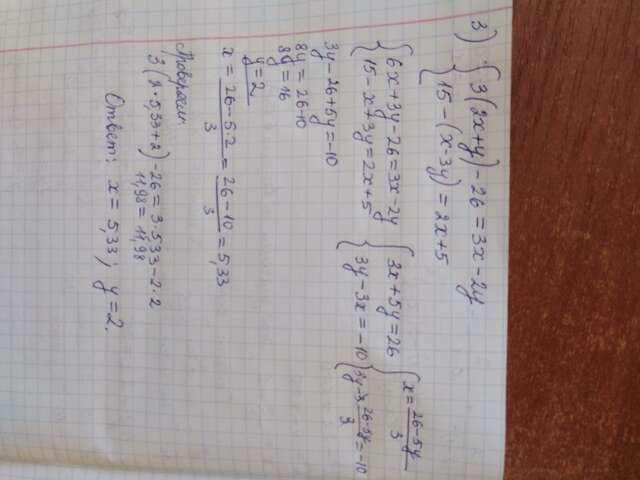 3) { 3(2x+y)-26=3x-2y
15-(x-3y)=2x+5
{ 6x+3y-26=3x-2y { 3x+5y=26 { x=(26-5y)/3
15-x+3y=2x+5 3y-3x=-10 3y-3·(26-5y)/3=-10
3y-26+5y=-10
8y=26-10
8y=16
y=2
x=(26-5·2)/3=(26-10)/3=5,33
Проверяем:
3(2·5,33+2)-26=3·5,33-2·2
11,98=11,98
Ответ: x=5,33; y=2.